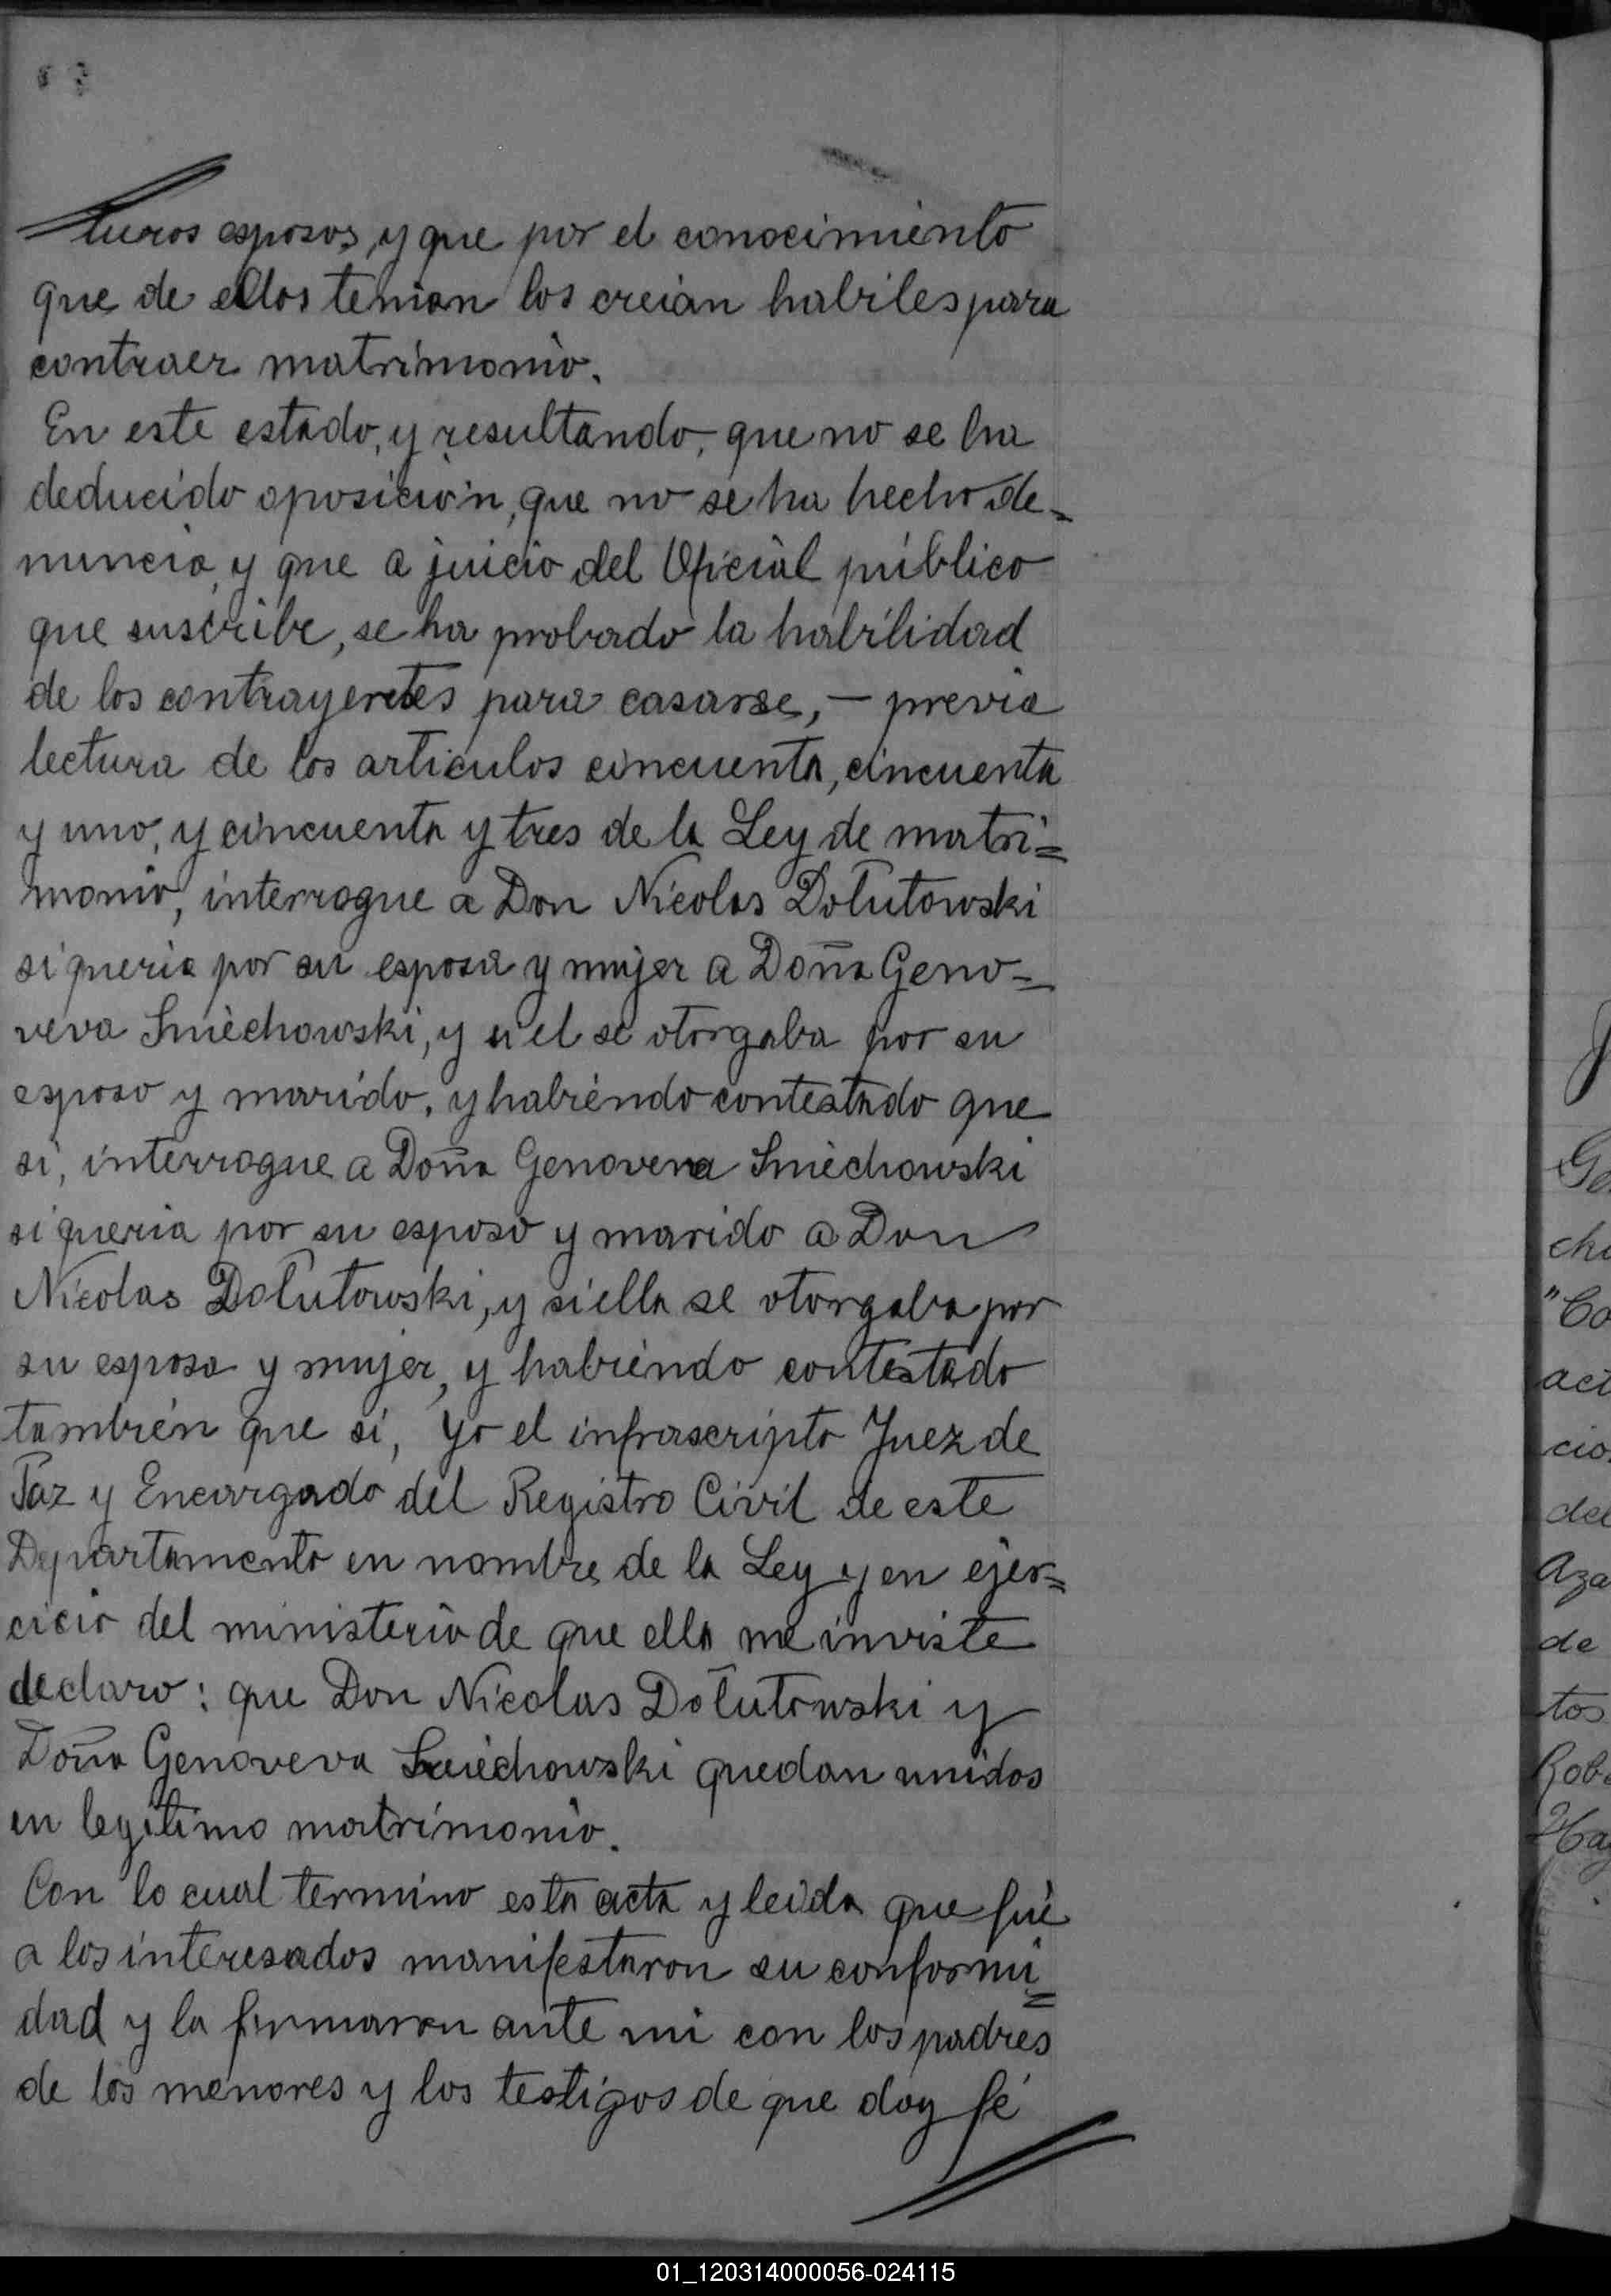 turos esposos, y que por el conocimiento
que de ellos tenian los creian habiles para
contraer matrimonio.
En este estado, y resultando, que no se ha
deducido oposición, que no se ha hecho de=
nuncia, y que a juicio del Oficial público
que suscribe, se ha probado la habilidad
de los contrayentes para casarse, — previa
lectura de los articulos cincuenta, cincuenta
y uno, y cincuenta y tres de la Ley de matri=
monio, interrogue a Don Nicolas Dolutowski
si queria por su esposa y mujer a Doña Geno=
veva Sniechowski, y si el se otorgaba por su
esposo y marido, y habiendo contestado que
si, interrogue a Doña Genoveva Sniechowski
si queria por su esposo y marido a Don
Nicolas Dolutowski, y si ella se otorgaba por
su esposa y mujer, y habiendo contestado
también que si, Yo el infrascripto Juez de
Paz y Encargado del Registro Civil de este
Departamento en nombre de la Ley y en ejer=
cicio del ministerio de que ella me inviste
declaro: que Don Nicolas Dolutowski y
Doña Genoveva Sniechowski quedan unidos
en legitimo matrimonio.
Con lo cual termino esta acta y leida que fué
a los interesados manifestaron su conformi=
dad y la firmaron ante mi con los padres
de los menores y los testigos de que doy fé
01_120314000056-024115